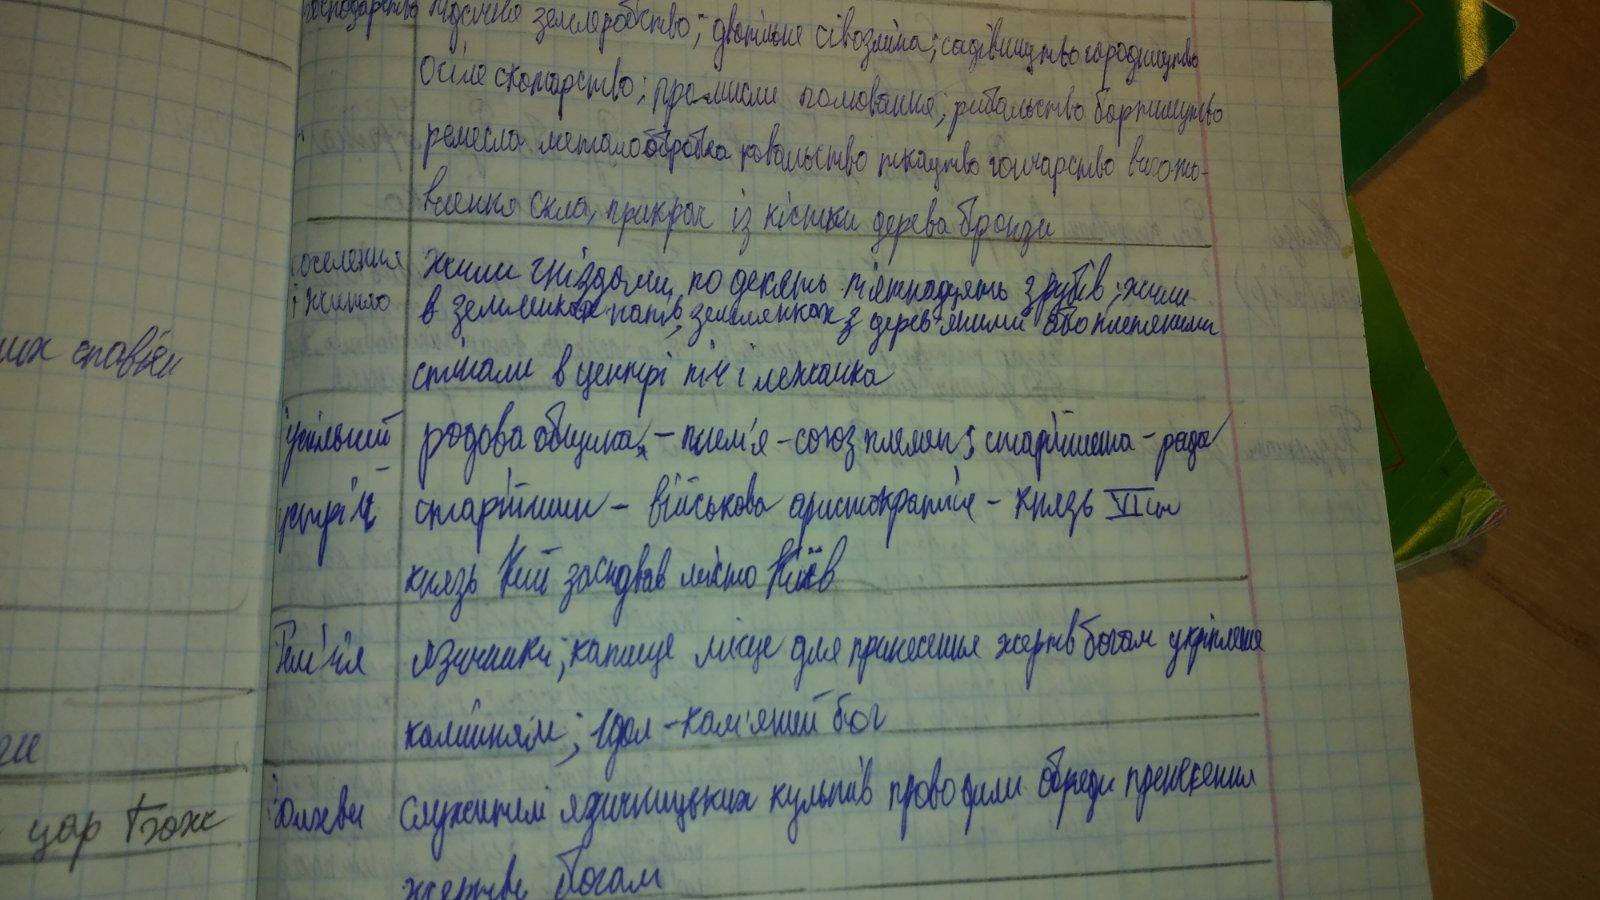 господарство підсічне землеробство; двопільне сівозміна; садівництво городництво
Осіле скотарство; промисли полювання; рибальство бортництво
ремесла металообробка ковальство ткацтво гончарство вигото-
влення скла, прикрас із кістки дерева бронзи
оселення жили гніздами, по десять п'ятнадцять зрубів; жили
і житло в землянках напів землянках з дерев'яними або плетеними
стінами в центрі піч і лежанка
успільний родова община, - плем'я - союз племен; старійшена - рада
устрій старійшин - військова аристократія - князь VI ст
князь Кий заснував місто Київ
Релігія язичники; капище місце для принесення жертв богам укріплене
камінням; Ідол - кам'яний бог
Волхви служителі язичницьких культів проводили обряди принесення
жертв богам
них слов'ян
цар Бож